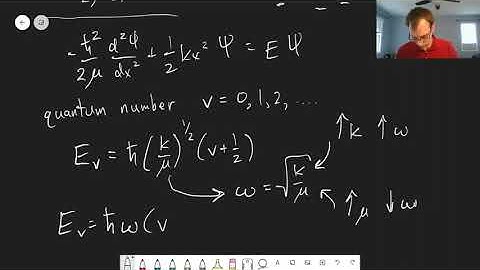 -ħ²/2μ d²Ψ/dx² + 1/2 kx² Ψ = E Ψ
quantum number v = 0, 1, 2, ....
↑k ↑ω
E_v = ħ (k/μ)^1/2 (v + 1/2)
→ ω = √(k/μ)
↑μ ↓ω
E_v = ħω (v